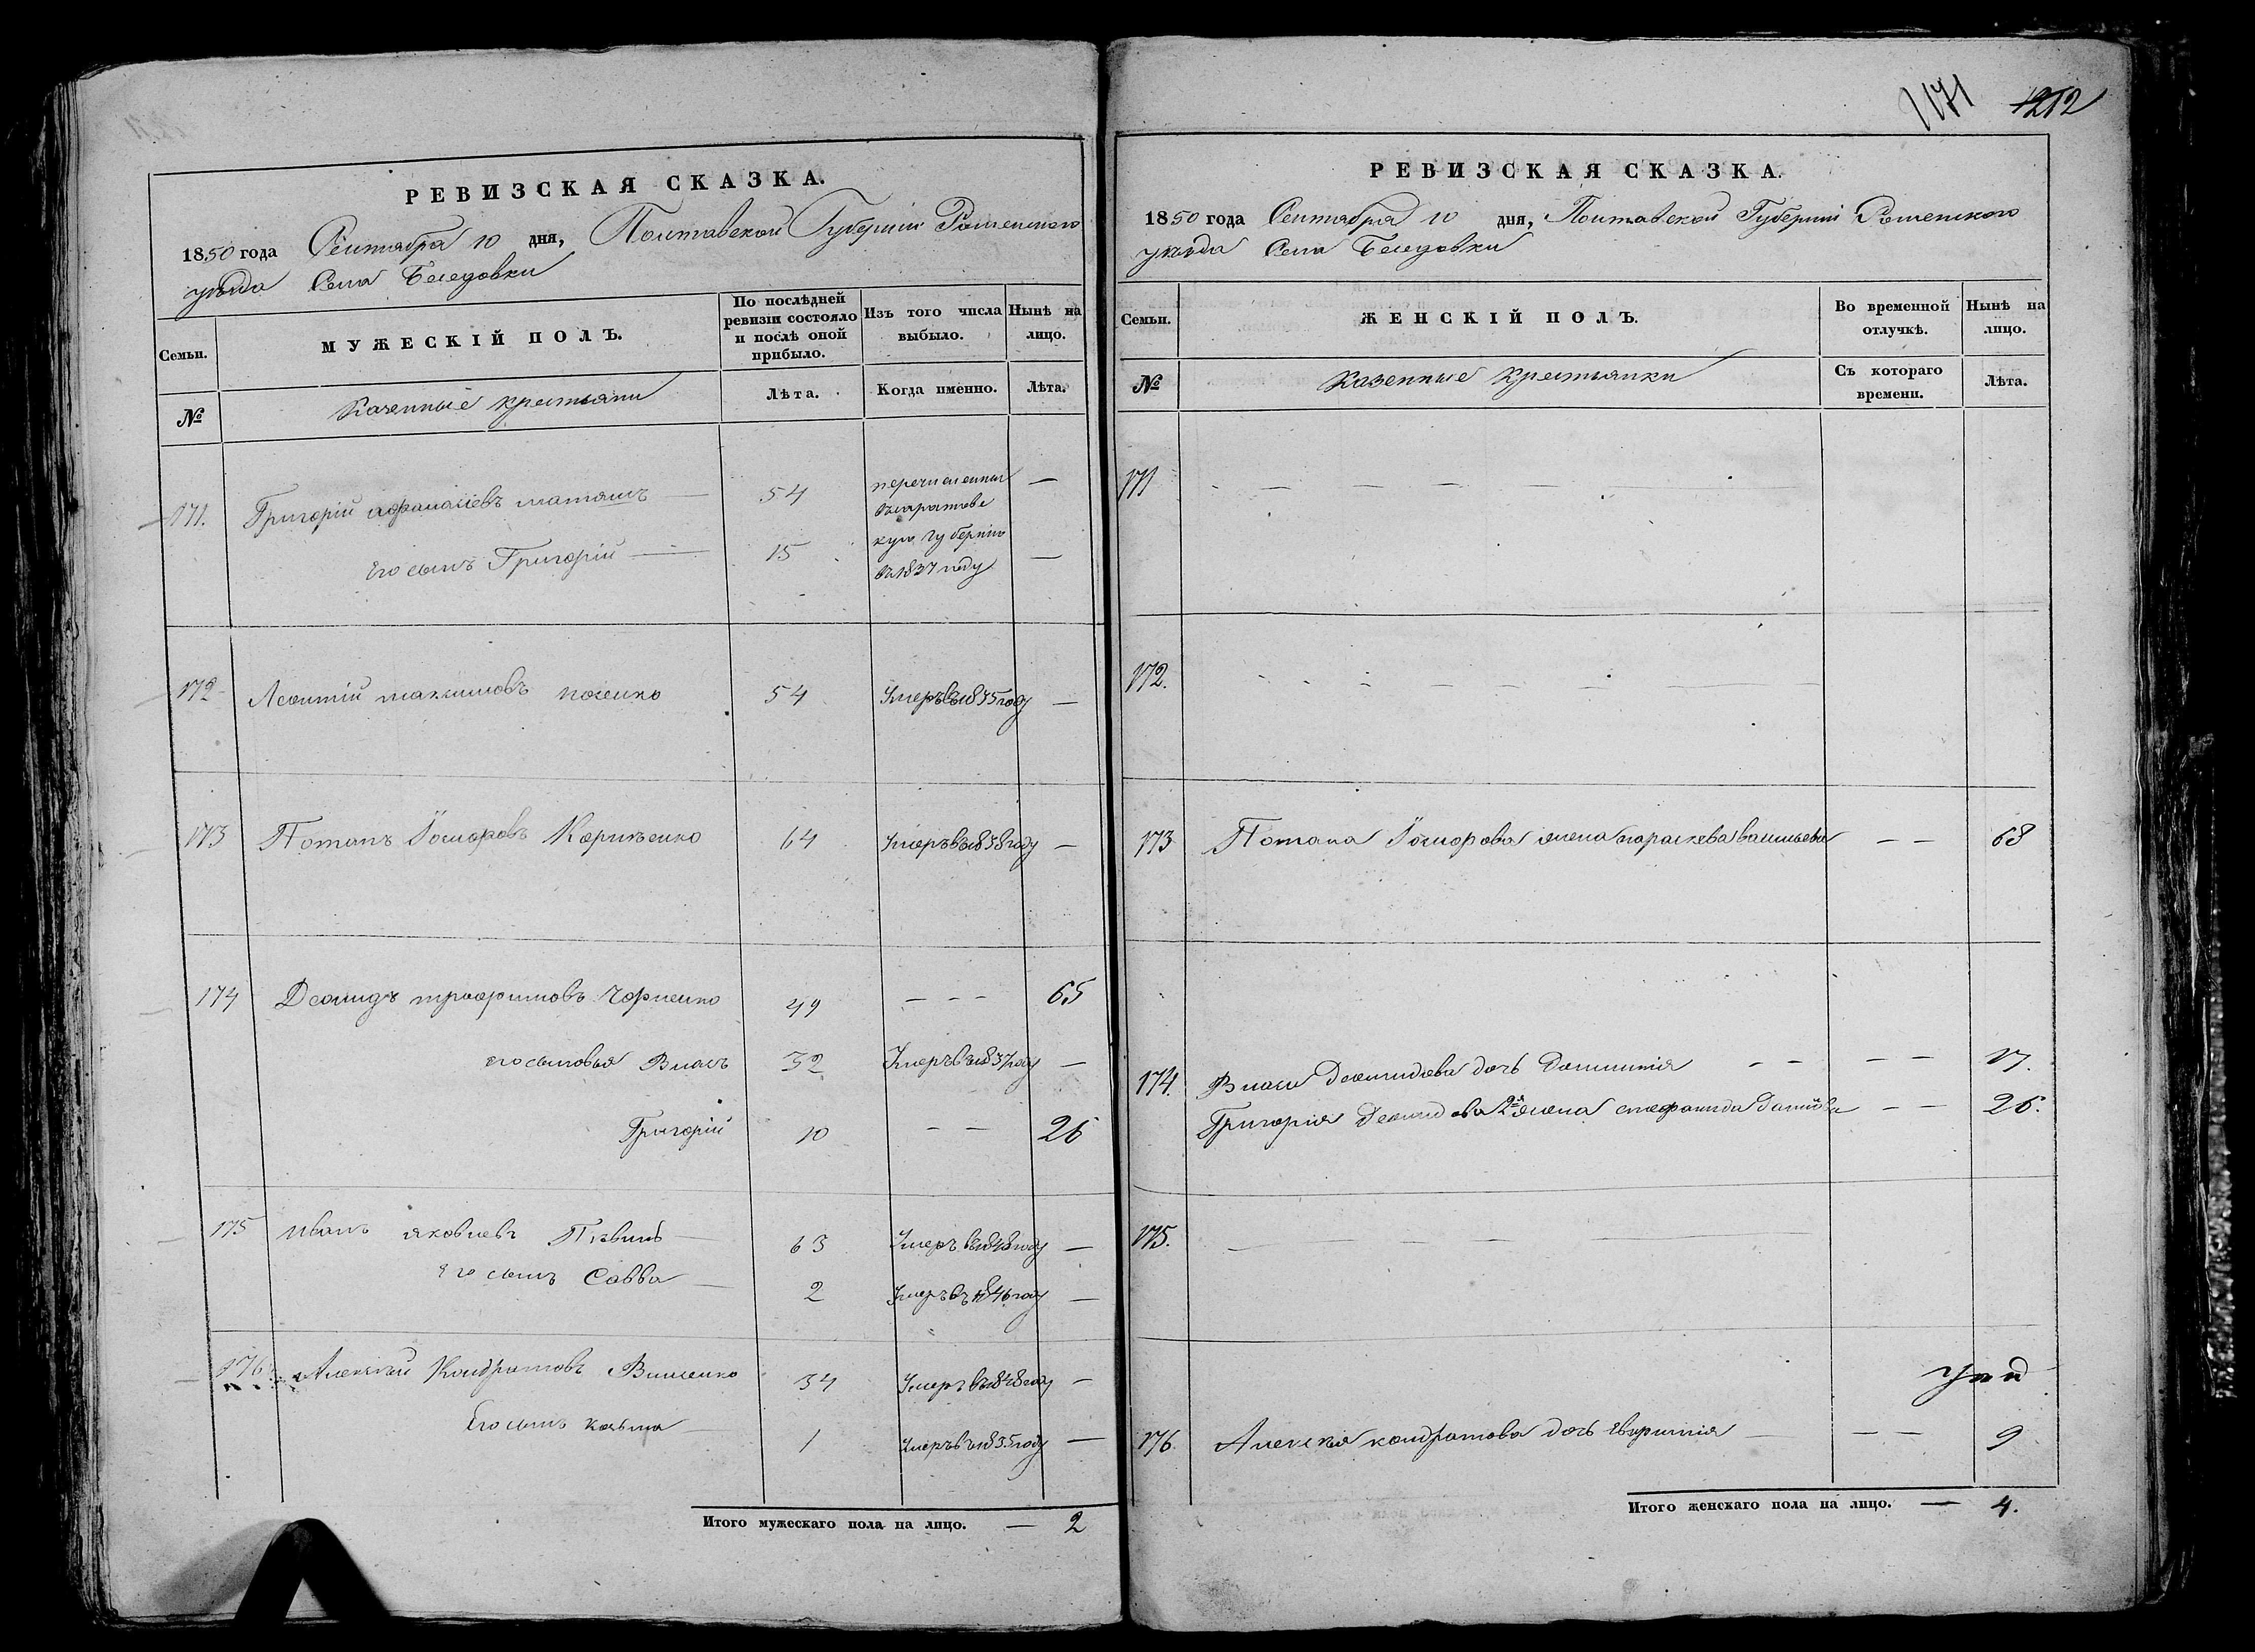 1171 1212
РЕВИЗСКАЯ СКАЗКА.
1850 года Сентября 10 дня, Полтавской Губерніи Роменского
уезда Села Беседовки
Семьи.
МУЖЕСКІЙ ПОЛЪ.
По послѣдней ревизіи состояло и послѣ оной прибыло.
Изъ того числа выбыло.
Нынѣ на лицо.
№
Казенные крестьяни
Лѣта.
Когда именно.
Лѣта.
171. Григорій афанасіевъ 54 перечисленны —
въ саратовс
его сынъ Григорій 15 кую губернію —
въ 1837 году
172 Леонтій максимовъ 54 Умеръ въ 1835 году —
173 Потапъ 64 Умеръ въ 1838 году —
174 Деомидъ трофимовъ Чорненко 49 — - - 65
его сыновья Власъ 32 Умеръ въ 1837 году —
Григорій 10 — — 26
175 Иванъ яковлевъ 63 Умеръ въ 1848 году —
его сынъ Савва 2 Умеръ въ 1846 году —
176 Алексѣй Кондратовъ 34 Умеръ въ 1848 году —
Его сынъ козьма 1 Умеръ въ 1835 году —
Итого мужескаго пола на лицо. — 2
РЕВИЗСКАЯ СКАЗКА.
1850 года Сентября 10 дня, Полтавской Губерніи Роменского
уезда Села Беседовки
Семьи.
ЖЕНСКІЙ ПОЛЪ.
Во временной отлучкѣ.
Нынѣ на лицо.
№
Казенные крестьянки
Съ котораго времени.
Лѣта.
171
172.
173 Потапа жена параскева васильева — — 68
174. Власа Деомидова дочь — — 17.
Григорія Деомидова 2я жена стефанида — — 26.
175.
176. Алексѣя кондратова дочь — — 9
Итого женскаго пола на лицо. — 4.